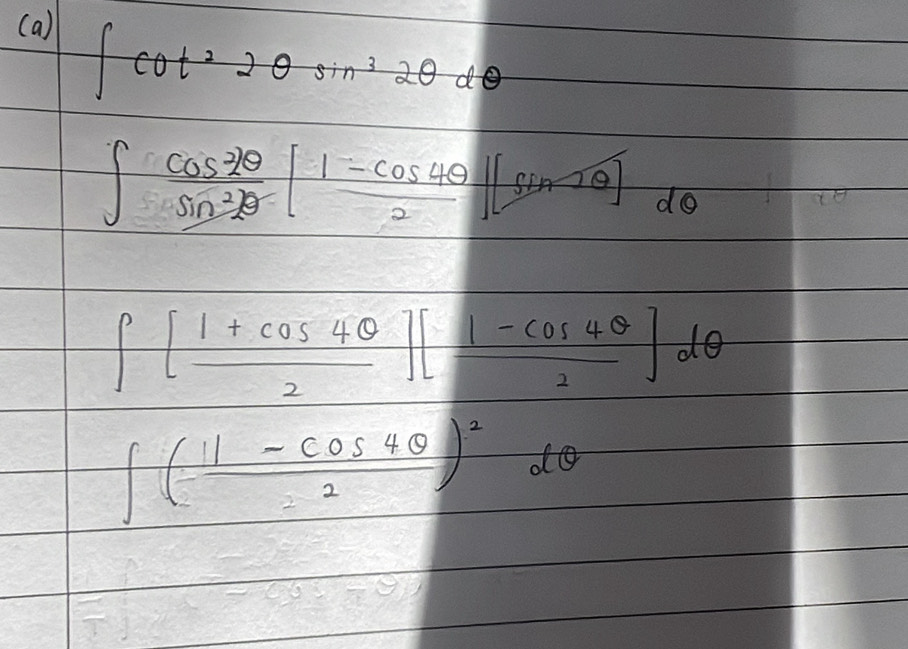 (a)
∫ cot² 2θ sin³ 2θ dθ
∫ cos²2θ / sin²2θ [ (1 - cos 4θ) / 2 ] [ sin 2θ ] dθ
∫ [ (1 + cos 4θ) / 2 ] [ (1 - cos 4θ) / 2 ] dθ
∫ ( (1 - cos 4θ) / 2 )² dθ